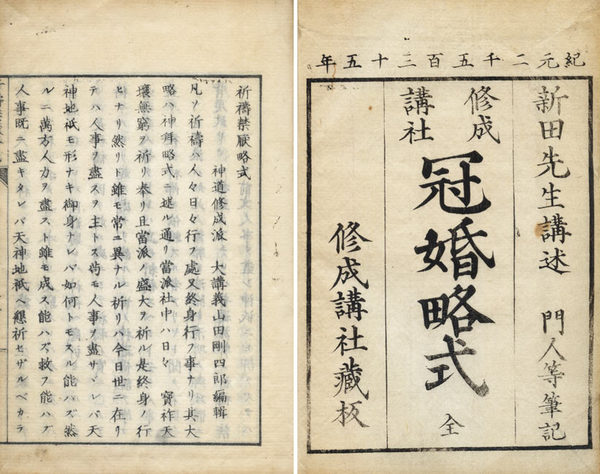 紀元二千五百三十五年
新田先生講述 門人等筆記
修成
講社
冠婚略式 全
修成講社藏板
祈禱禁厭略式
神道修成派 大講義山田剛四郎編輯
凡ソ祈禱ハ人々日々行フ處又終身行フ事ナリ其大
略ハ神拜略式ニ述ル通リ當派社中ハ日々 寶祚天
壤無窮ヲ祈リ奉リ且當派ノ盛大ヲ祈ル是終身ノ行
ヒナリ然リト雖モ常ニ異ナル祈リハ今日世ニ在リ
テハ人事ヲ盡スヲ主トス尚モ人事ヲ盡サヾレバ天
神地祇モ形ナキ御身ナレバ如何トモスル能ハズ然
ルニ萬方人力ヲ盡スト雖モ成ス能ハズ救フ能ハズ
人事既ニ盡キタレバ天神地祇ヘ懇祈セザルベカラ